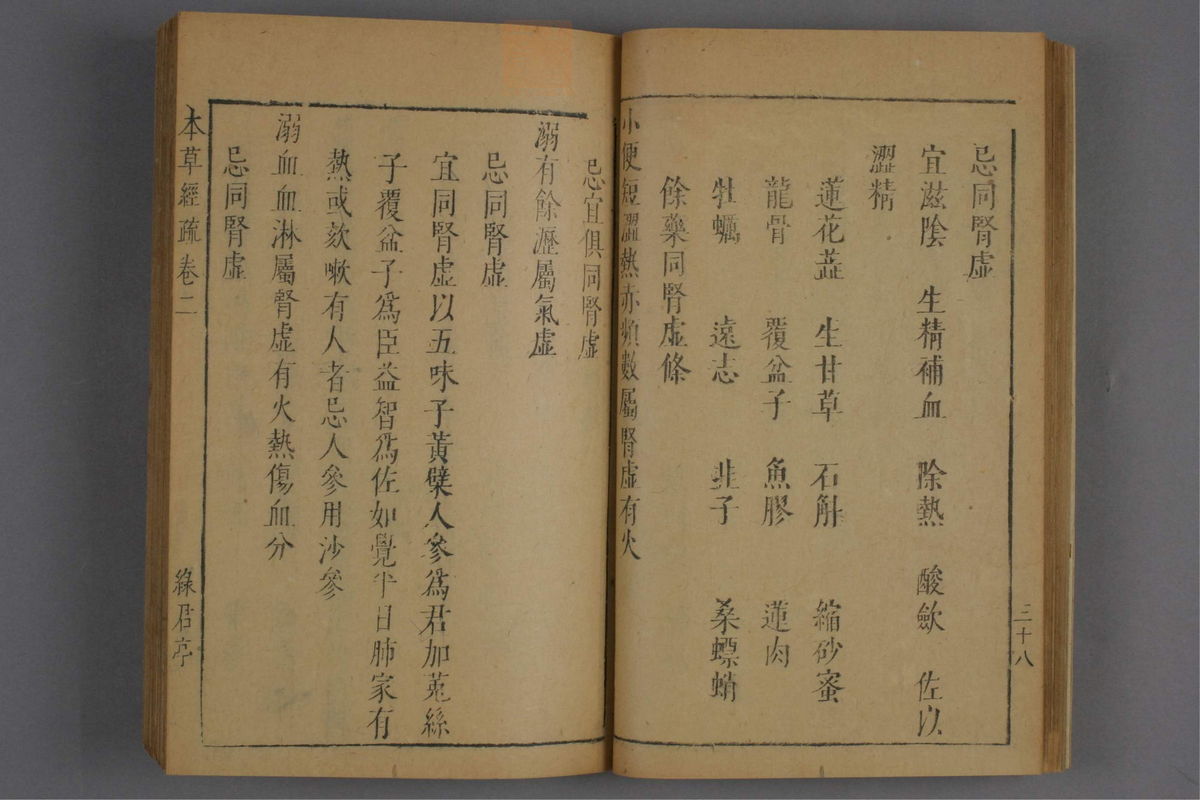 忌同腎虛
宜滋陰 生精補血 除熱 酸歛 佐以
澀精
蓮花蕋 生甘草 石斛 縮砂蜜
龍骨 覆盆子 魚膠 蓮肉
牡蠣 遠志 韭子 桑螵蛸
餘藥同腎虛條
小便短澀熱赤頻數屬腎虛有火
三十八
忌宜俱同腎虛
溺有餘瀝屬氣虛
忌同腎虛
宜同腎虛以五味子黃檗人參為君加菟絲
子覆盆子為臣益智為佐如覺平日肺家有
熱或欬嗽有人者忌人參用沙參
溺血血淋屬腎虛有火熱傷血分
忌同腎虛
本草經疏 卷二 綠君亭